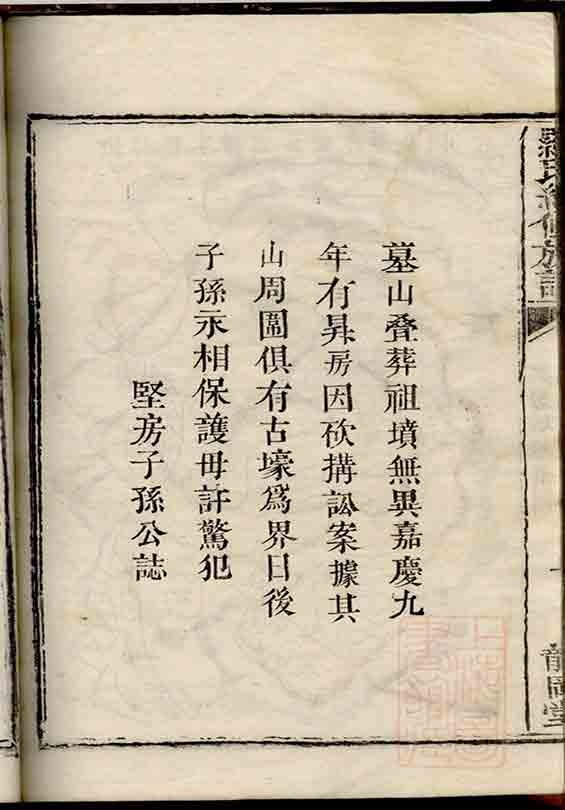 墓山叠葬祖墳無異嘉慶九
年冇昇房因砍搆訟案據其
山周圍俱有古壕爲界日後
子孫永相保護毋許驚犯
堅房子孫公誌
龍岡堂